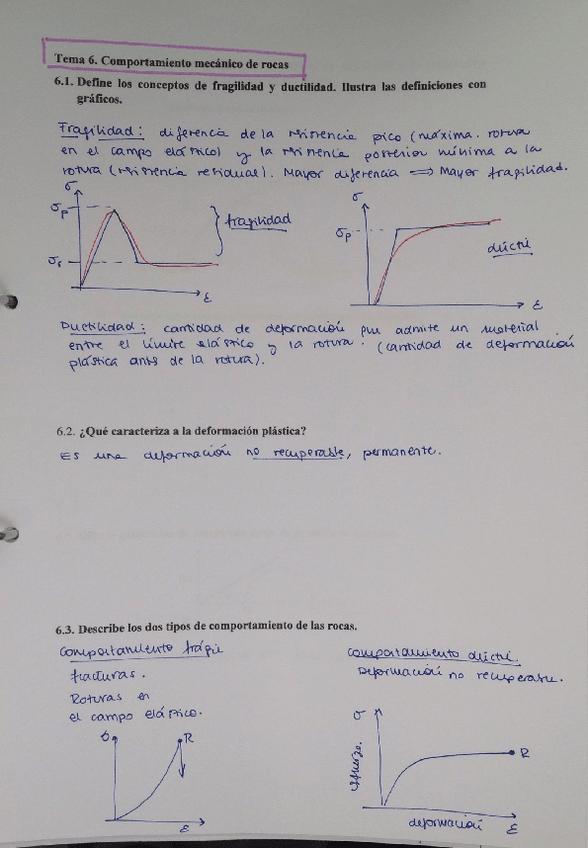 Tema 6. Comportamiento mecánico de rocas
6.1. Define los conceptos de fragilidad y ductilidad. Ilustra las definiciones con
gráficos.
Fragilidad: diferencia de la resistencia pico (máxima. rotura
en el campo elástico) y la resistencia posterior mínima a la
rotura (resistencia residual). Mayor diferencia ⟹ Mayor fragilidad.
σ
σp
fragilidad
σr
ε
σ
σp
dúctil
ε
Ductilidad: cantidad de deformación que admite un material
entre el límite elástico y la rotura. (cantidad de deformación
plástica antes de la rotura).
6.2. ¿Qué caracteriza a la deformación plástica?
Es una deformación no recuperable, permanente.
6.3. Describe los dos tipos de comportamiento de las rocas.
Comportamiento frágil
fracturas.
Roturas en
el campo elástico.
σ
R
ε
Comportamiento dúctil.
Deformación no recuperable.
σ
esfuerzo.
R
deformación ε